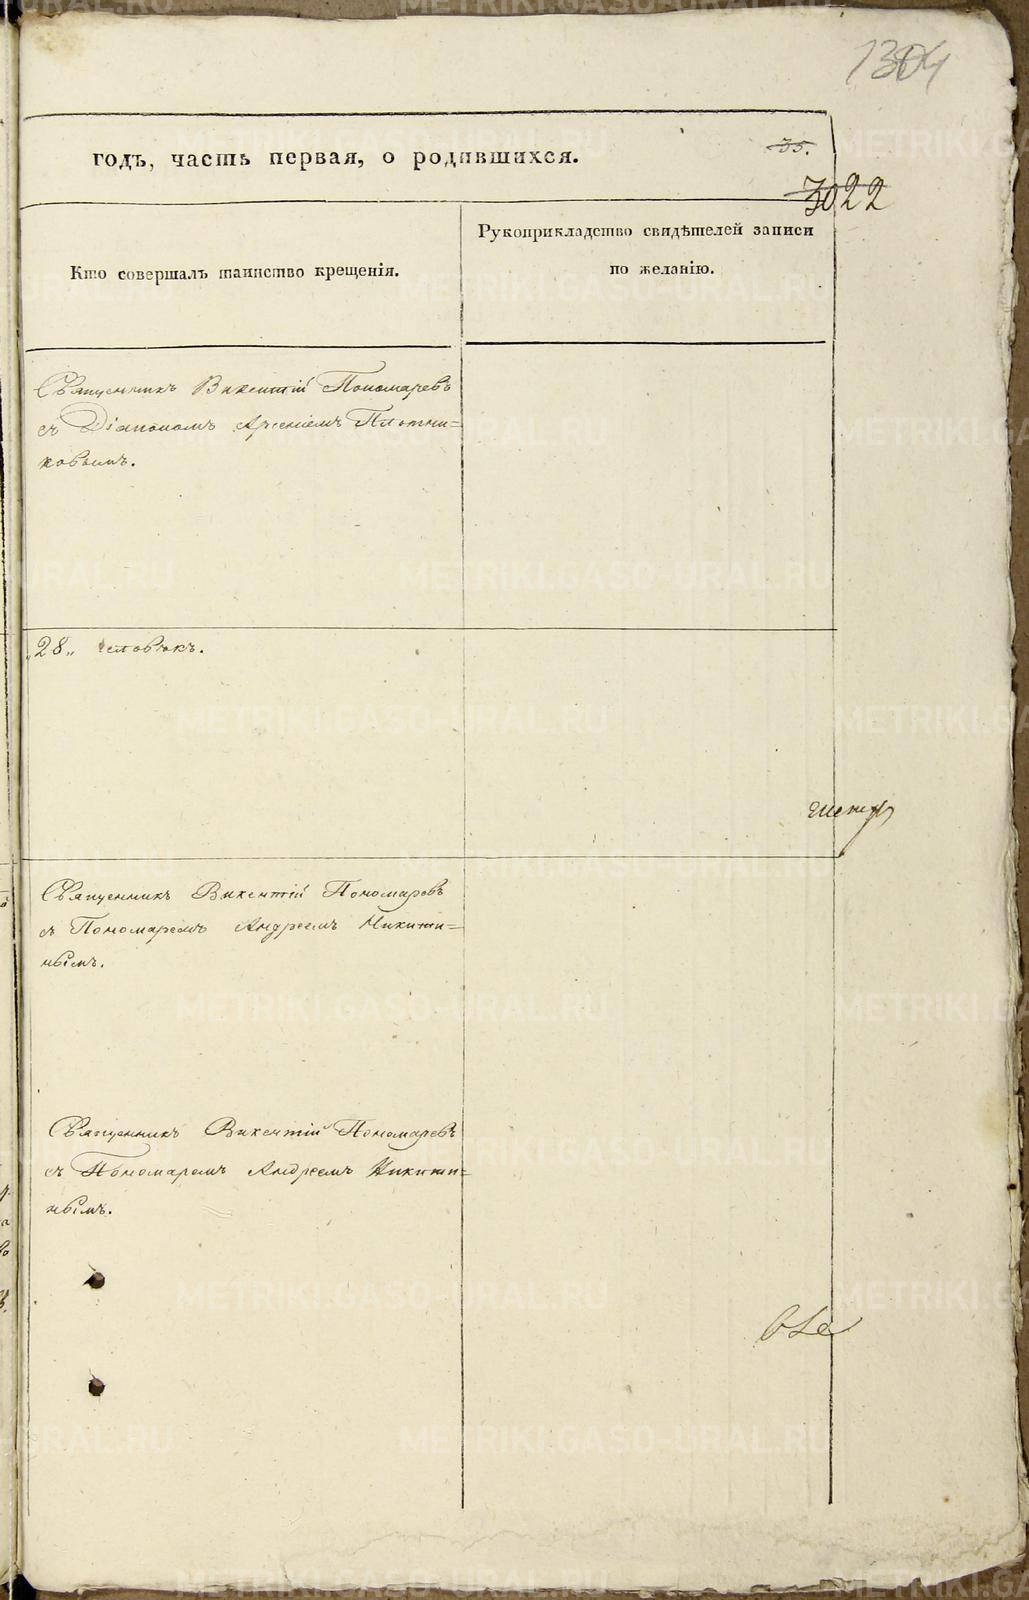 1304
годъ, часть первая, о родившихся.
35.
3022
Кто совершалъ таинство крещенія.
Рукоприкладство свидѣтелей записи
по желанію.
Священникъ Викентій Пономаревъ
съ Діакономъ Арсеніемъ Плотни=
ковымъ.
„28„ человѣкъ.
Священникъ Викентій Пономаревъ
съ Пономаремъ Андреемъ Никити=
нымъ.
Священникъ Викентій Пономаревъ
съ Пономаремъ Андреемъ Никити=
нымъ.
METRIKI.GASO-URAL.RU